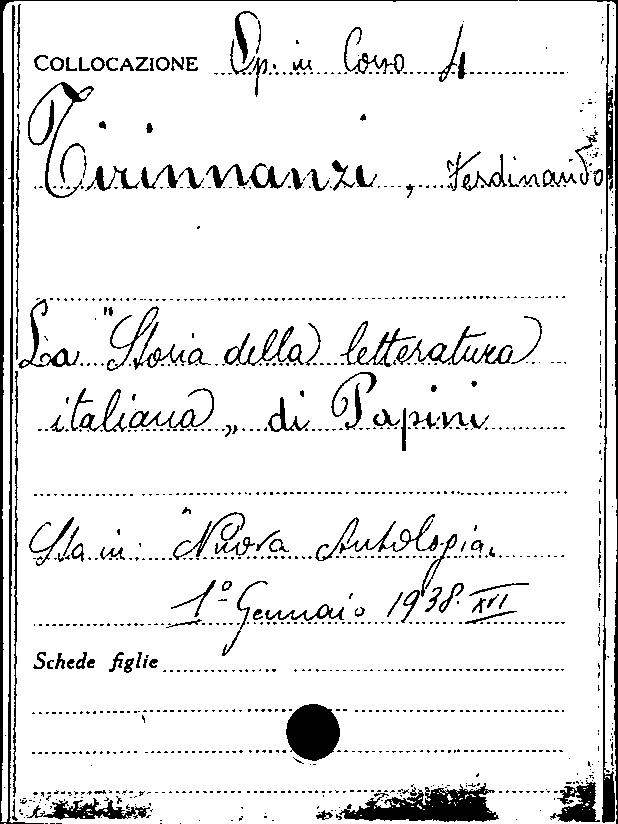 COLLOCAZIONE Op. in Corso 4
Tirinnanzi, Ferdinando
La "Storia della letteratura
italiana„ di Papini
Sta in: "Nuova Antologia.
1º Gennaio 1938. XVI
Schede figlie